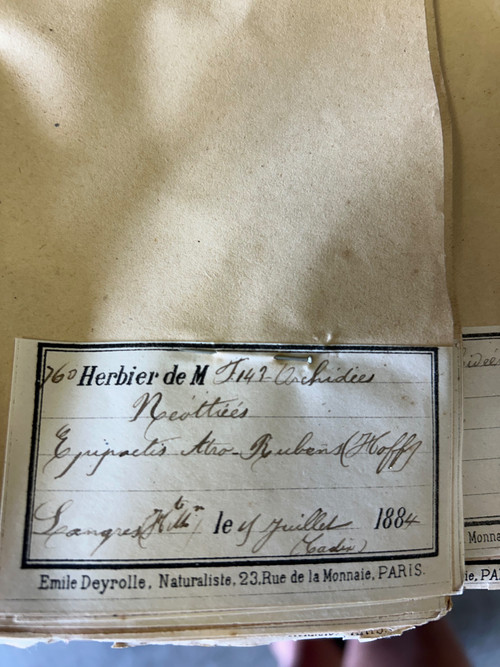 760 Herbier de M F.142 Orchidées
Néottiées
Epipactis Atro-Rubens (Hoff)
Langres (Hte Mn) le 15 Juillet 1884
Emile Deyrolle, Naturaliste, 23, Rue de la Monnaie, PARIS.
Monna
ie, PA